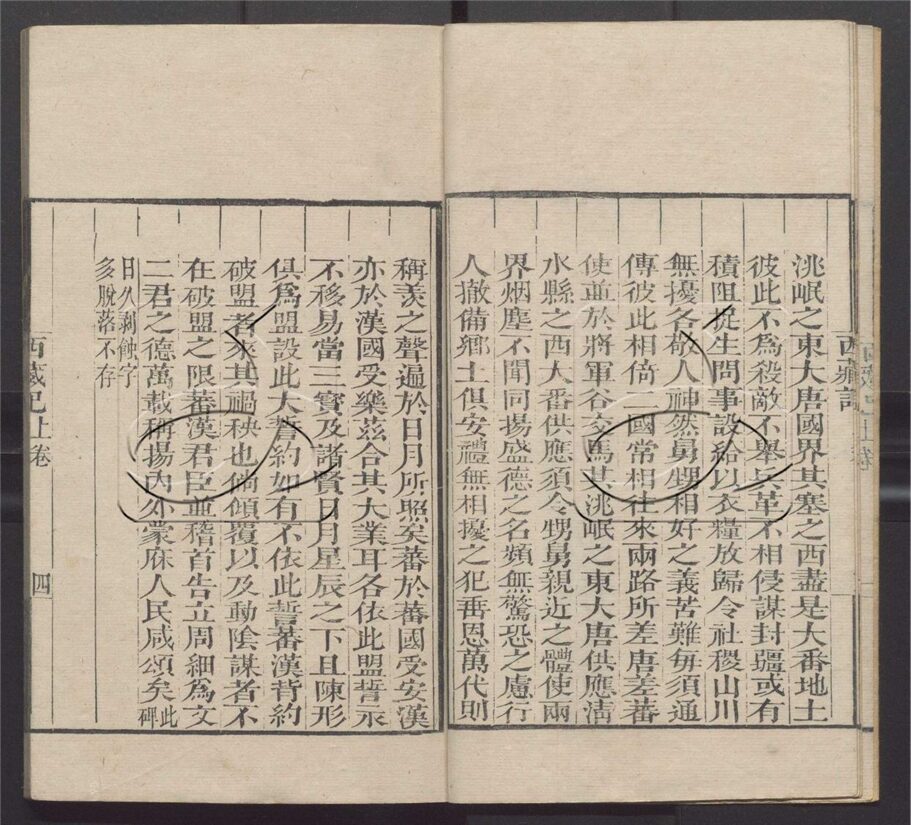 洮岷之東大唐國界其塞之西盡是大番地土
彼此不為殺敵不舉兵革不相侵謀封疆或有
積阻捉生問事設給以衣糧放歸令社稷山川
無擾各敬人神然舅甥相好之義苦難每須通
傳彼此相倚二國常相往來兩路所差唐差蕃
使並於將軍谷交馬其洮岷之東大唐供應清
水縣之西大番供應須令甥舅親近之體使兩
界烟塵不聞同揚盛德之名頻無驚恐之慮行
人撤備鄉土俱安禮無相擾之犯番恩萬代則
稱羡之聲遍於日月所照矣蕃於蕃國受安漢
亦於漢國受樂茲合其大業耳各依此盟誓永
不移易當三寶及諸賢日月星辰之下且陳形
俱為盟設此大誓約如有不依此誓蕃漢背約
破盟者來其禍秧也倘傾覆以及動陰謀者不
在破盟之限蕃漢君臣並稽首告立周細為文
二君之德萬載稱揚內外蒙庥人民咸頌矣此碑
日久剝蝕字
多脫落不存
西藏記上卷
四